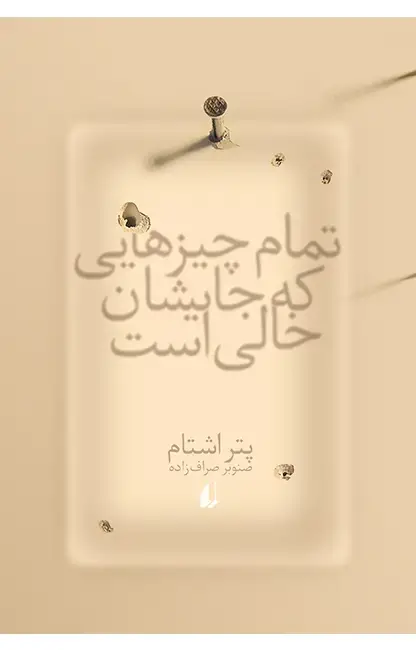 تمام چیزهایی
که جایشان
خالی است
پتر اشتام
صنوبر صراف‌زاده